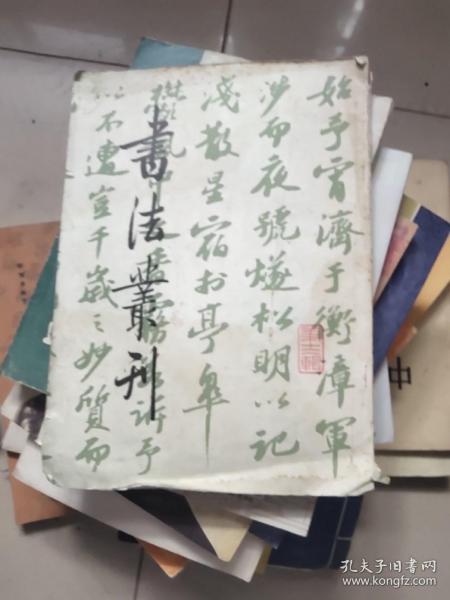 書法叢刊
始予宵濟于衡漳軍
涉而夜號燧松明以記
淺散星宿於亭皋
風霧訴予
以不遭豈千歲之妙質而
中
孔夫子旧书网
www.kongfz.com